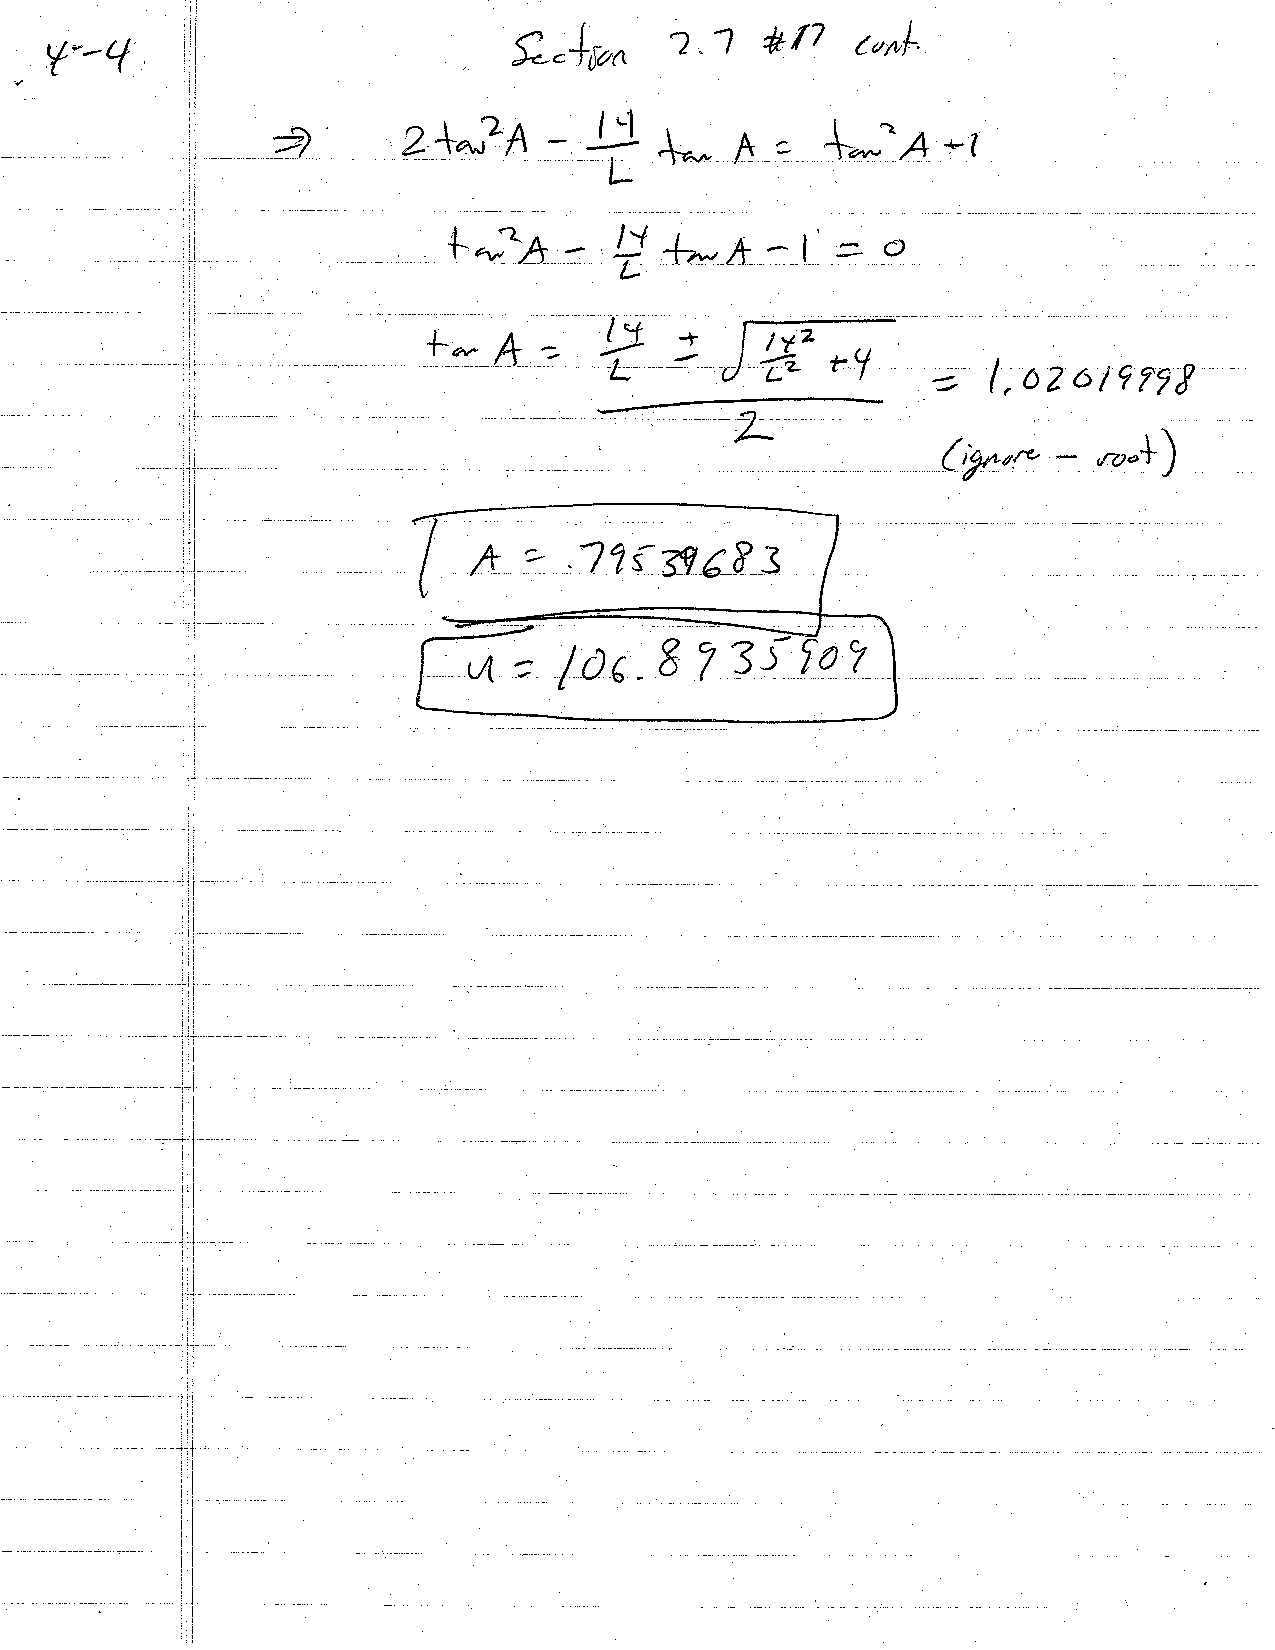 4-4
Section 2.7 #17 cont.
⇒ 2tan²A - 14/L tan A = tan²A+1
tan²A - 14/L tan A - 1 = 0
tan A = (14/L ± √(14²/L² + 4))/2 = 1.02019998
(ignore - root)
A = .79539683
u = 106.8935909